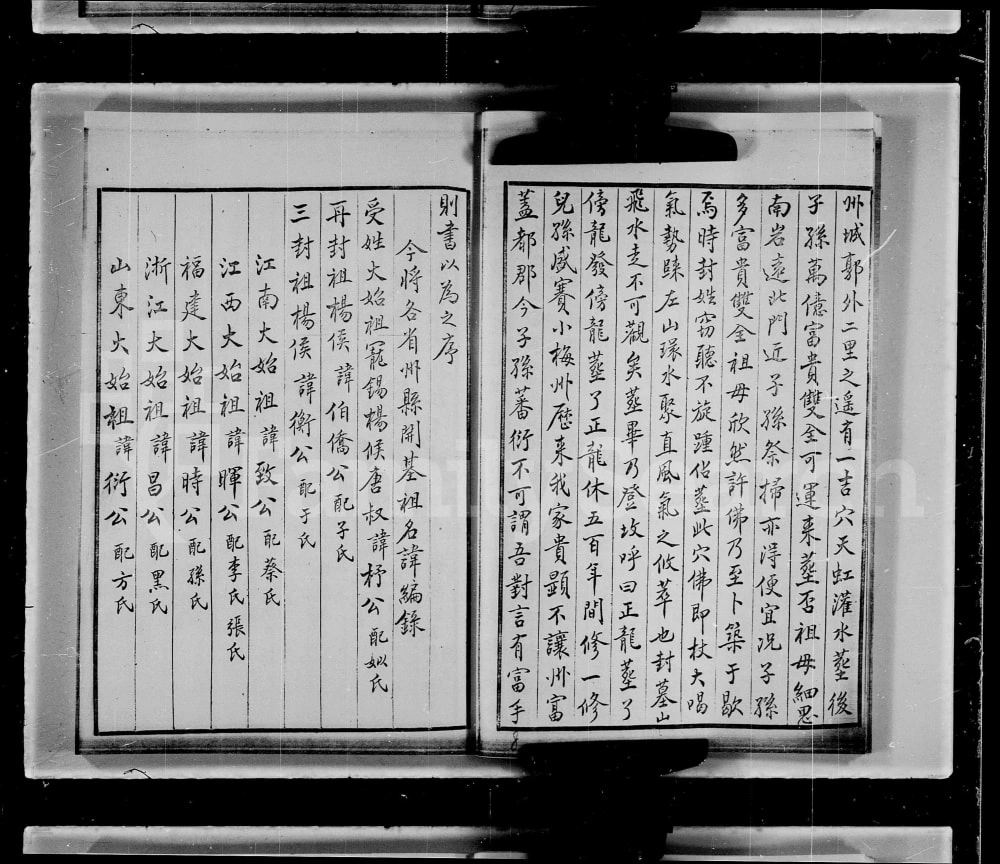 州城郭外二里之遥有一吉穴天虹灌水塟後
子孫萬億富貴雙全可運来塟否祖母細思
南岩遠此門近子孫祭掃亦淂便宜况子孫
多富貴雙全祖母欣然許佛乃至卜築于歇
焉時封姓窃聽不旋踵佔塟此穴佛即杖大喝
氣勢踈左山環水聚直風氣之攸萃也封墓山
飛水走不可觀矣塟畢乃登坟呼曰正龍塟了
傍龍發傍龍塟了正龍休五百年間修一修
兒孫感賽小梅州歷来我家貴顯不讓州富
蓋都郡今子孫蕃衍不可謂吾對言有富手
則書以為之序
今将各省州縣開基祖名諱編錄
受姓大始祖寵錫楊侯唐叔諱杼公配姒氏
再封祖楊侯諱伯僑公配子氏
三封祖楊侯諱衡公配于氏
江南大始祖諱致公配蔡氏
江西大始祖諱暉公配李氏張氏
福建大始祖諱時公配孫氏
浙江大始祖諱昌公配黑氏
山東大始祖諱衍公配方氏